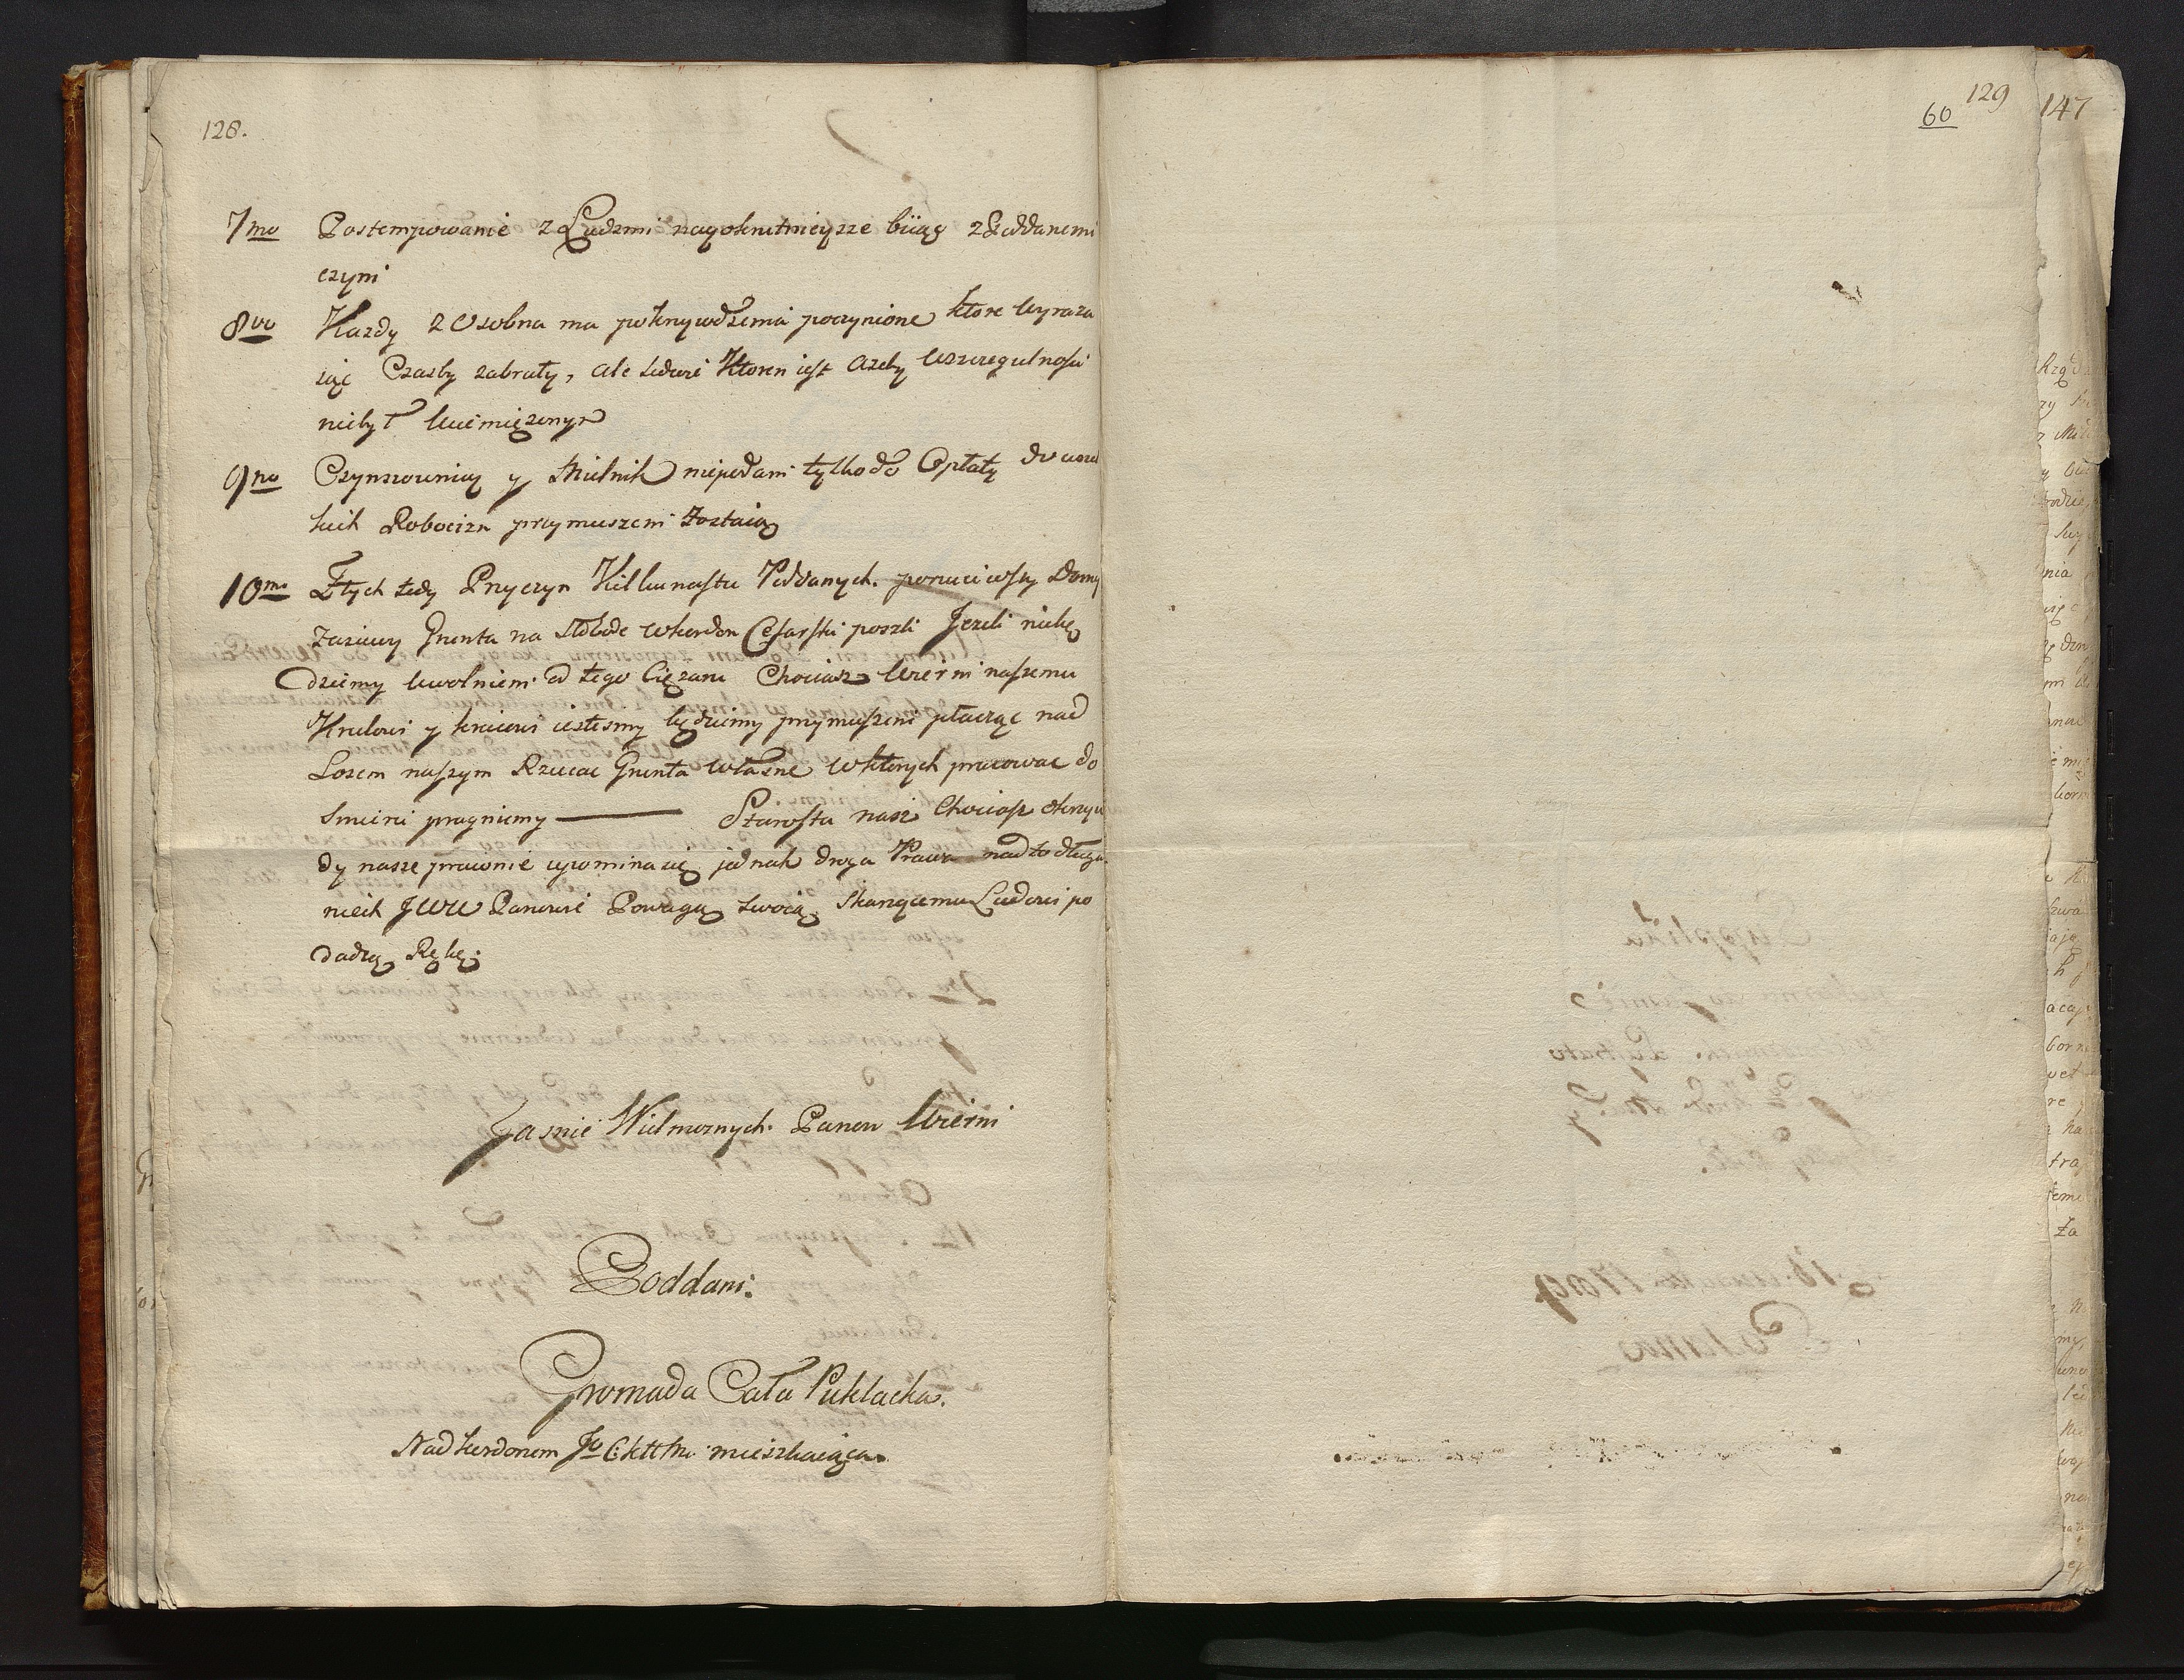 128.
7mo Postempowanie z Ludzmi nayokrutnieysze biiąc z Poddanemi
czyni
8vo Kazdy z Osobna ma pokrzywdzenia poczynione ktore wyraza
iąc Czasby zabrały, ale ktoren iest azeby wszczegulnosci
niebył uciemięzonyn
9no Czynszownicy y Mielnik niepodani tylko do Opłaty do
Robocizn przymuszeni Zostaią
10mo Z tych tedy Przyczyn Kilkunastu Poddanych porzuciwszy Domy
Zasiewy Grunta na Slobode w kordon Cesarski poszli Jezeli niebę
dziemy uwolnieni od tego Cięzaru Chociasz Wierni naszemu
Krulowi y kraiowi iestesmy będziemy przymuszeni płacząc nad
Losem naszym Rzucac Grunta własne w ktorych pracowac do
Smierci pragniemy ——— Starosta nasz Chociasz okrzyw
dy nasze prawnie upomina się jednak droga Prawa nadto długa
niech JWW Panowie Powagą swoią Skarzącemu Ludowi po
dadzą Rękę.
Jasnie Wielmoznych Panow Wierni
Poddani.
Gromada Cała Puklacka.
Nad kordonem mieszkaiąca.
129
60
147